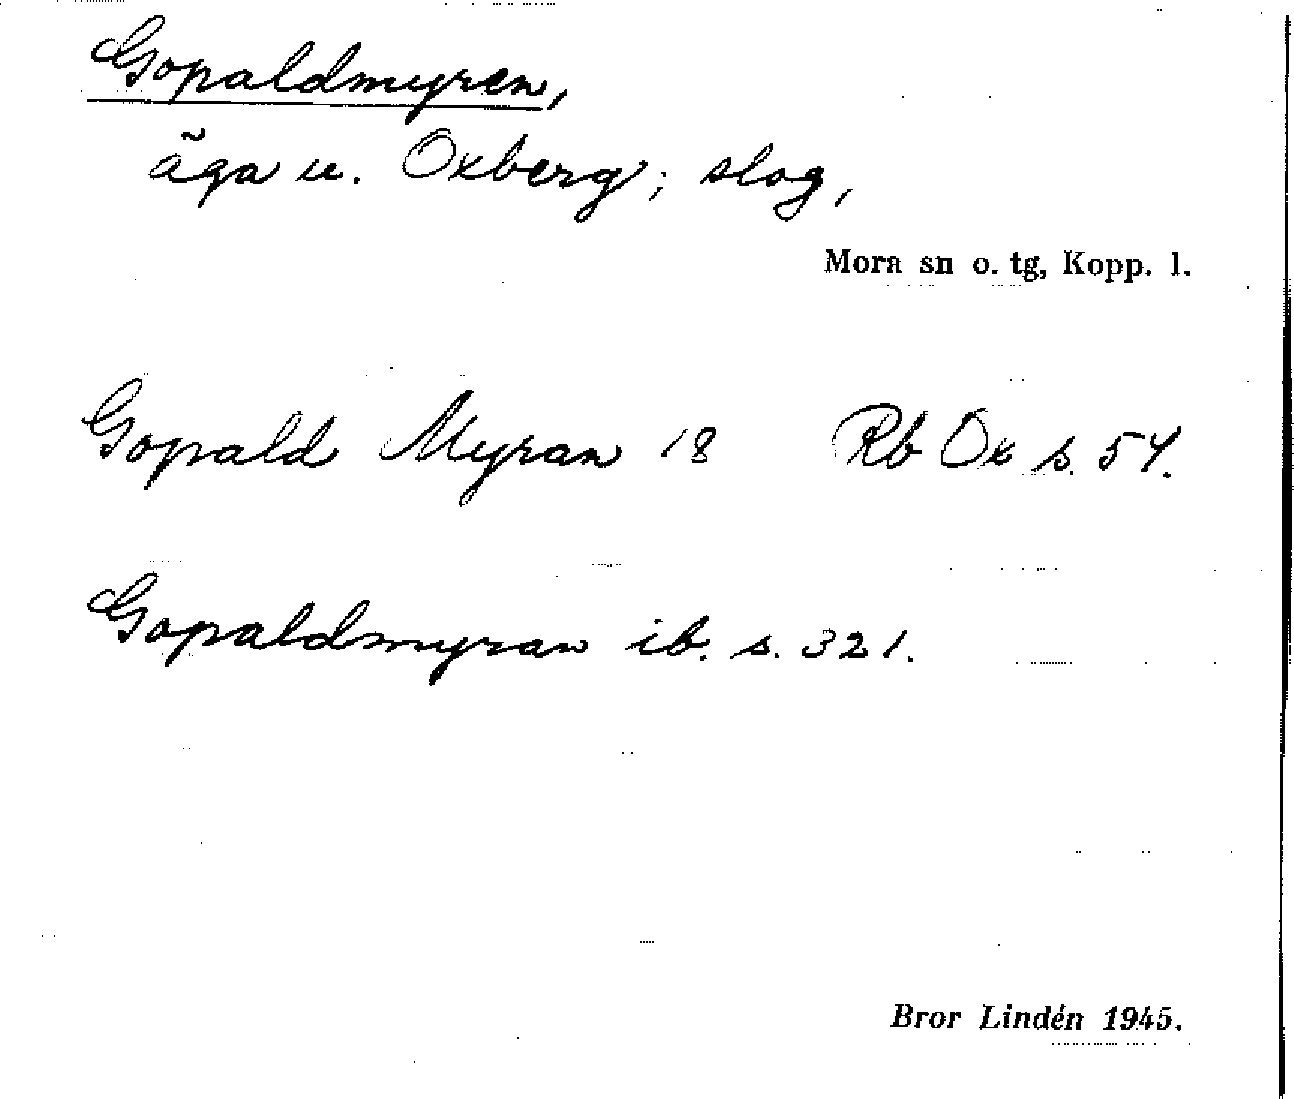 Gopaldmyren,
äga u. Oxberg; slog,
Mora sn o. tg, Kopp. l.
Gopald Myran 18 Rb Ox s. 54.
Gopaldmyran ib. s. 321.
Bror Lindén 1945.